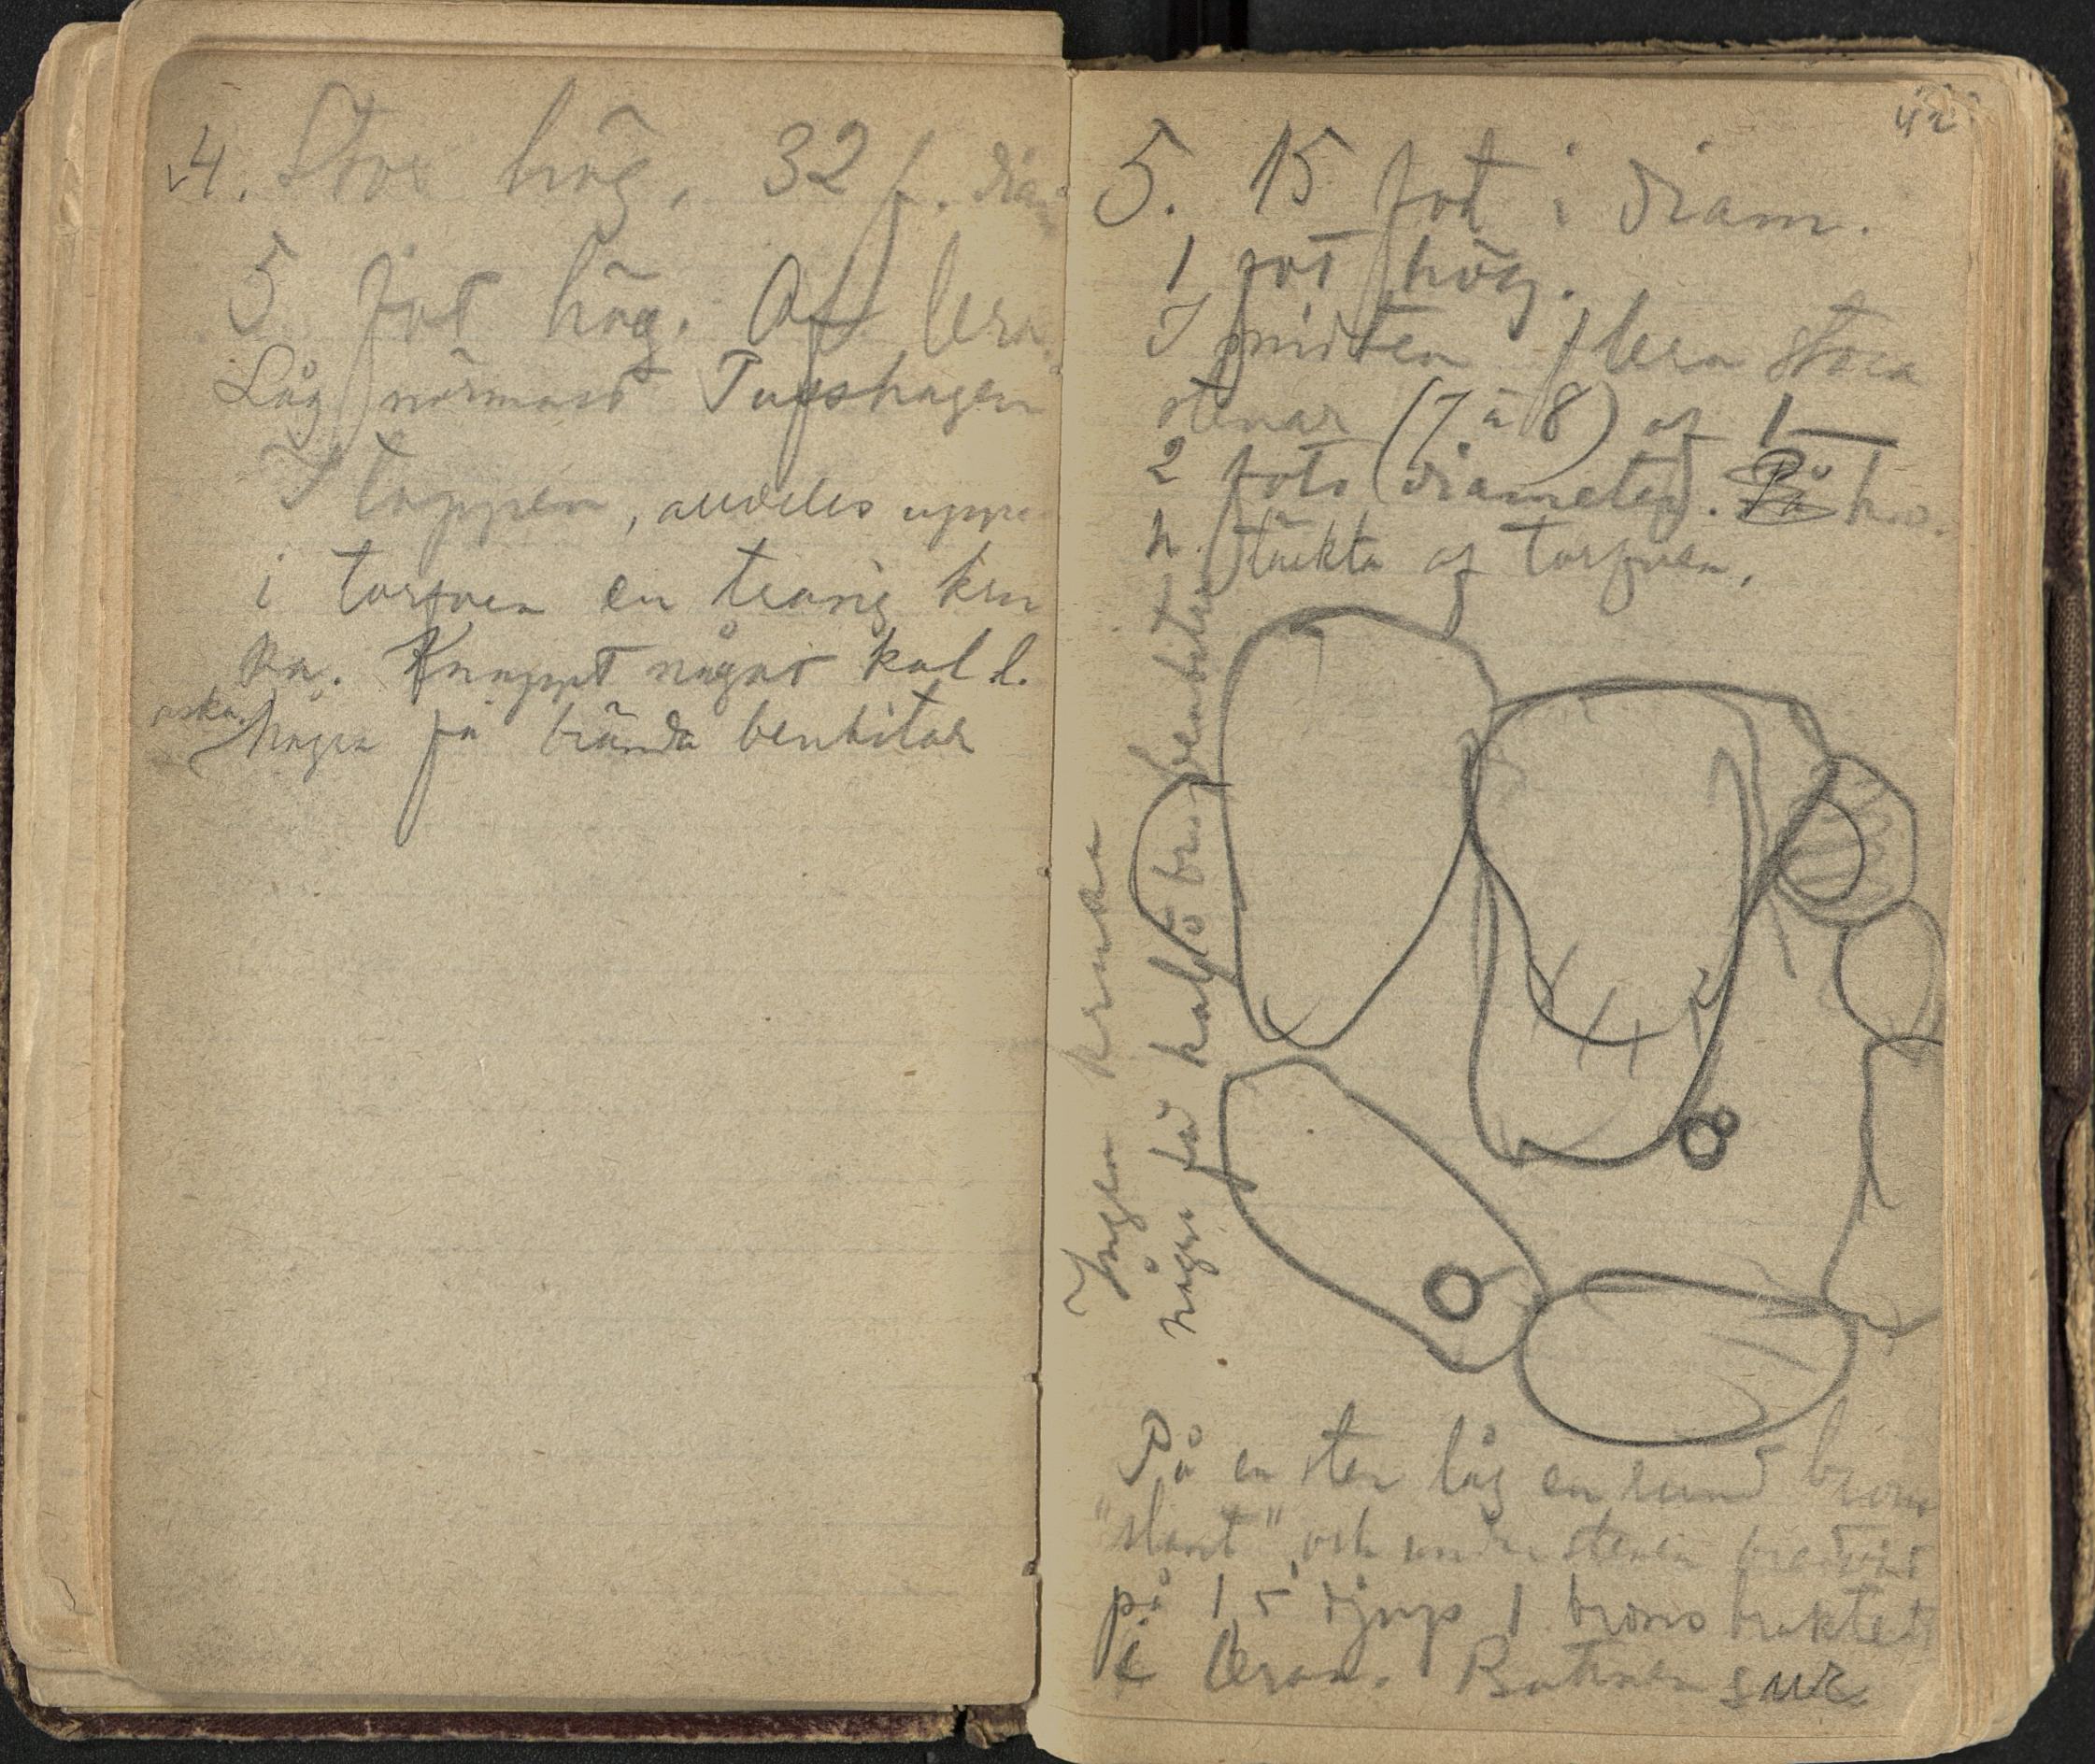 4. Stor hög, 32 f. diam
5 fot hög. Af lera.
Låg närmast
I toppen, alldeles uppe
i torfven en trasig kru
ka. Knappt något kol l.
aska. Några få brända benbitar
42
5. 15 fot i diam.
1 fot hög.
I midten flera stora
stenar (7 à 8) af 1—
2 fots diameter. På
täckta af torfven.
Ingen kruka
några få kol o brus benbitar
På en sten låg en rund brons
"slant" och under stenen bredvid
på 1,5' djup 1 brons braktet
i leran. Bottnen sur